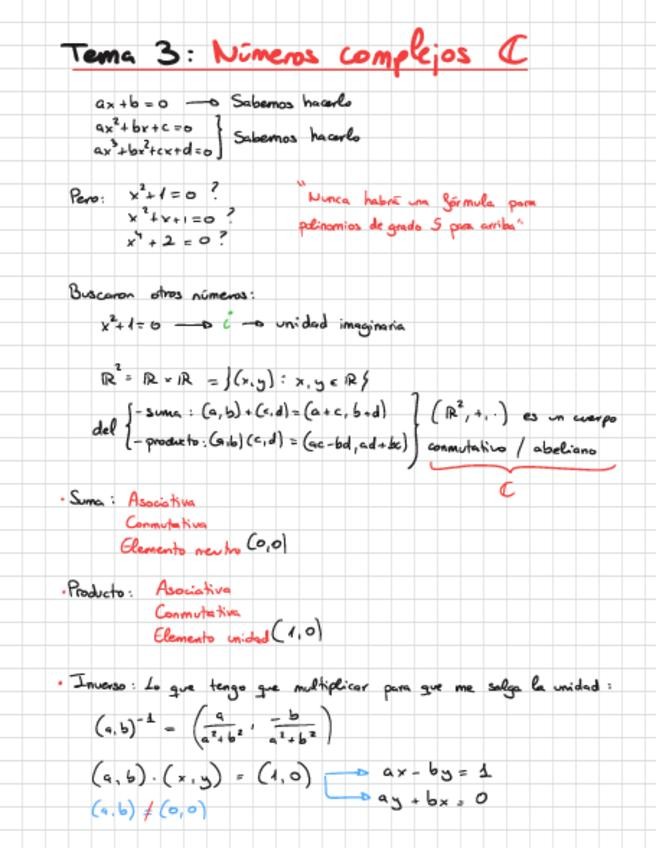 Tema 3: Números complejos ℂ
ax + b = 0 → Sabemos hacerlo
ax² + bx + c = 0
ax³ + bx² + cx + d = 0 } Sabemos hacerlo
Pero: x² + 1 = 0 ?
x² + x + 1 = 0 ?
x⁴ + 2 = 0 ?
"Nunca habrá una fórmula para
polinomios de grado 5 para arriba"
Buscaron otros números:
x² + 1 = 0 → i → unidad imaginaria
ℝ² = ℝ × ℝ = {(x,y) : x, y ∈ ℝ}
def { - suma : (a,b) + (c,d) = (a+c, b+d)
- producto : (a,b)(c,d) = (ac-bd, ad+bc) }
(ℝ², +, ·) es un cuerpo
conmutativo / abeliano
ℂ
· Suma : Asociativa
Conmutativa
Elemento neutro (0,0)
· Producto : Asociativa
Conmutativa
Elemento unidad (1,0)
· Inverso : Lo que tengo que multiplicar para que me salga la unidad :
(a,b)⁻¹ = (a/(a²+b²), -b/(a²+b²))
(a,b) · (x,y) = (1,0) → ax - by = 1
→ ay + bx = 0
(a,b) ≠ (0,0)